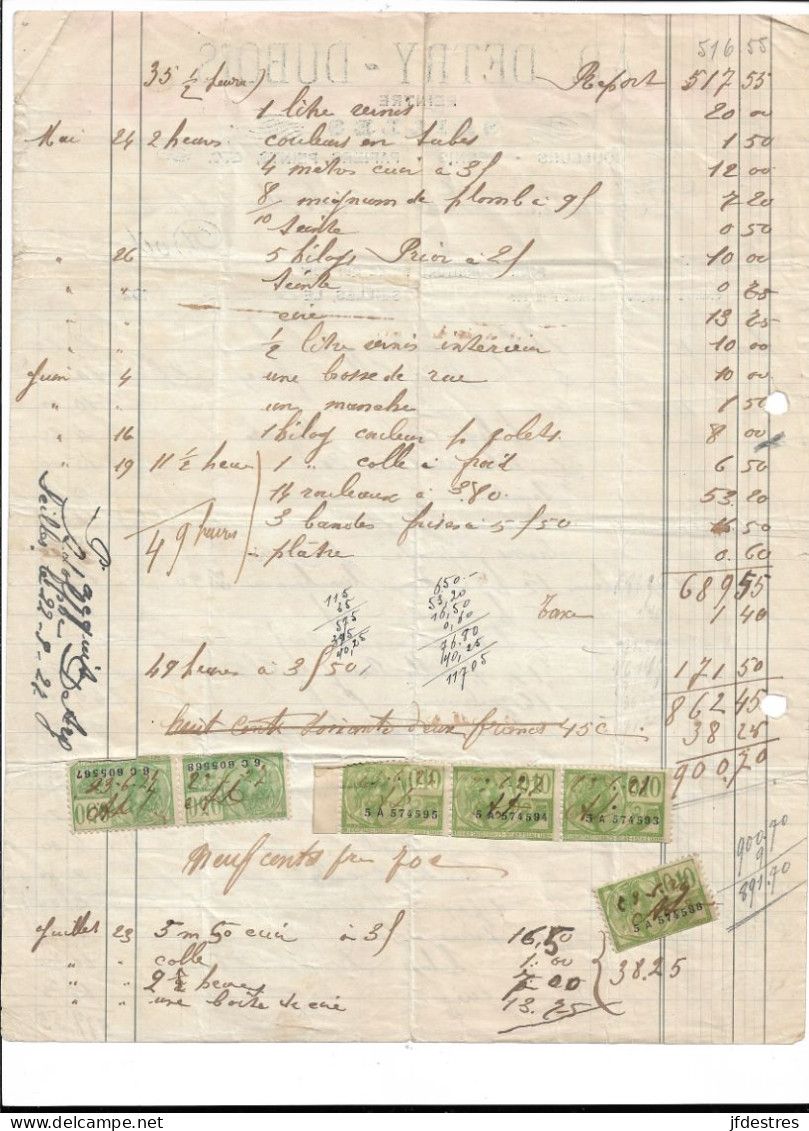 516 55
35 ½ heures) Report 517 55
1 litre vernis 20 00
Mai 24 2 heures couleurs en tubes 1 50
4 mètres cuir à 3f 12 00
8/10 de plomb à 9f 7 20
teinte 0 50
" 26 5 kilogs à 2f 10 00
" " teinte 0 25
" " ciré 13 25
" " ½ litre vernis intérieur 10 00
Juin 4 une bosse de rue 10 00
" " un manche 1 50
" 16 1 kilog couleur p volets 8 00
" 19 11 ½ heures 1 " colle à froid 6 50
14 rouleaux à 3.80 53.20
3 bandes frises à 5f50 16 50
49 heures plâtre 0.60
689 55
Taxe 1 40
115
35
575
345
40,25
650
53,20
16,50
0,60
76.80
40,25
117 05
49 heures à 3f50 171 50
862 45
huit cents soixante deux francs 45c 38 25
900.70
Pr acquit
Seilles, le 22-8-22
6 C 605567
6 C 605568
5 A 574595
5 A 574594
5 A 574593
0,10
Neuf cents frs 70c
900.70
9
891.70
5 A 573588
Juillet 23 5 m 50 cuir à 3f 16,50
" " colle 1.00
" " 2 ½ heures 00
" " une boîte de ciré 13.25
38.25
AD DETRY-DUBOIS
PEINTRE
SEILLES
jfdestres